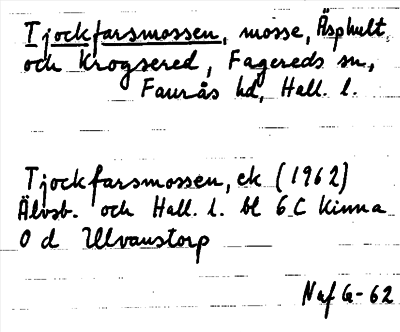 Tjockfarsmossen, mosse, Äsphult
och Krogsered, Fagereds sn,
Faurås hd, Hall. l.
Tjockfarsmossen, ek (1962)
Älvsb. och Hall. l. bl 6 C Kinna
0 d Ulvanstorp
Naf G-62